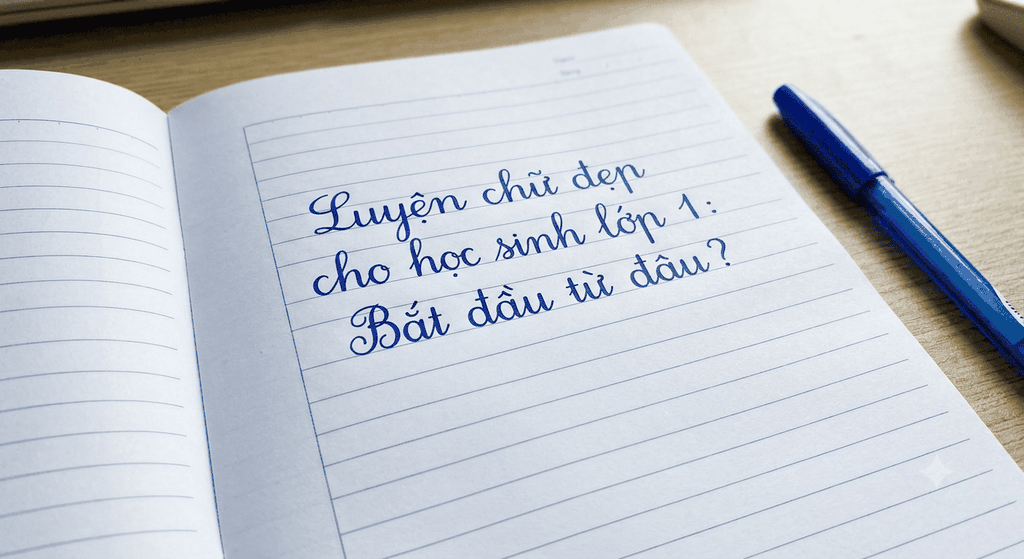 Luyện chữ đẹp
cho học sinh lớp 1:
Bắt đầu từ đâu?